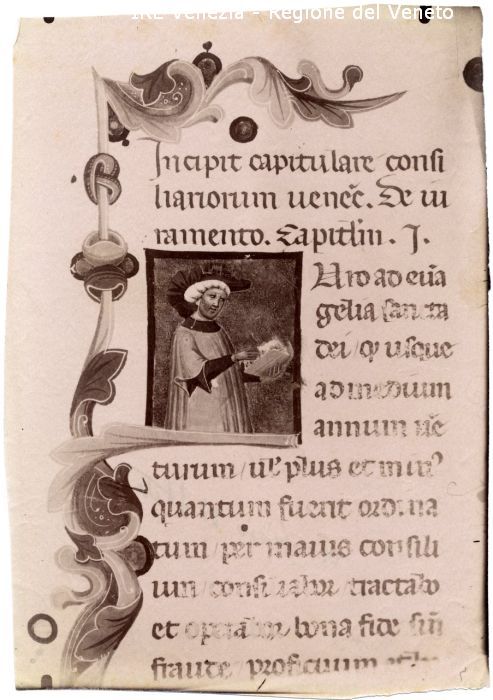 IRE Venezia - Regione del Veneto
Incipit capitulare consi
liariorum uenec̄. De iu
ramento. Capitl̄m. J.
Uro ad euā
gelia sancta
dei / qͥ usque
ad medium
annum uē
turum / ul̄ plus et min⁹
quantum fuerit ordina
tum / per maius consili
um / consiliabor / tractabo
et operabor bona fide sin̄
fraude / proficuum